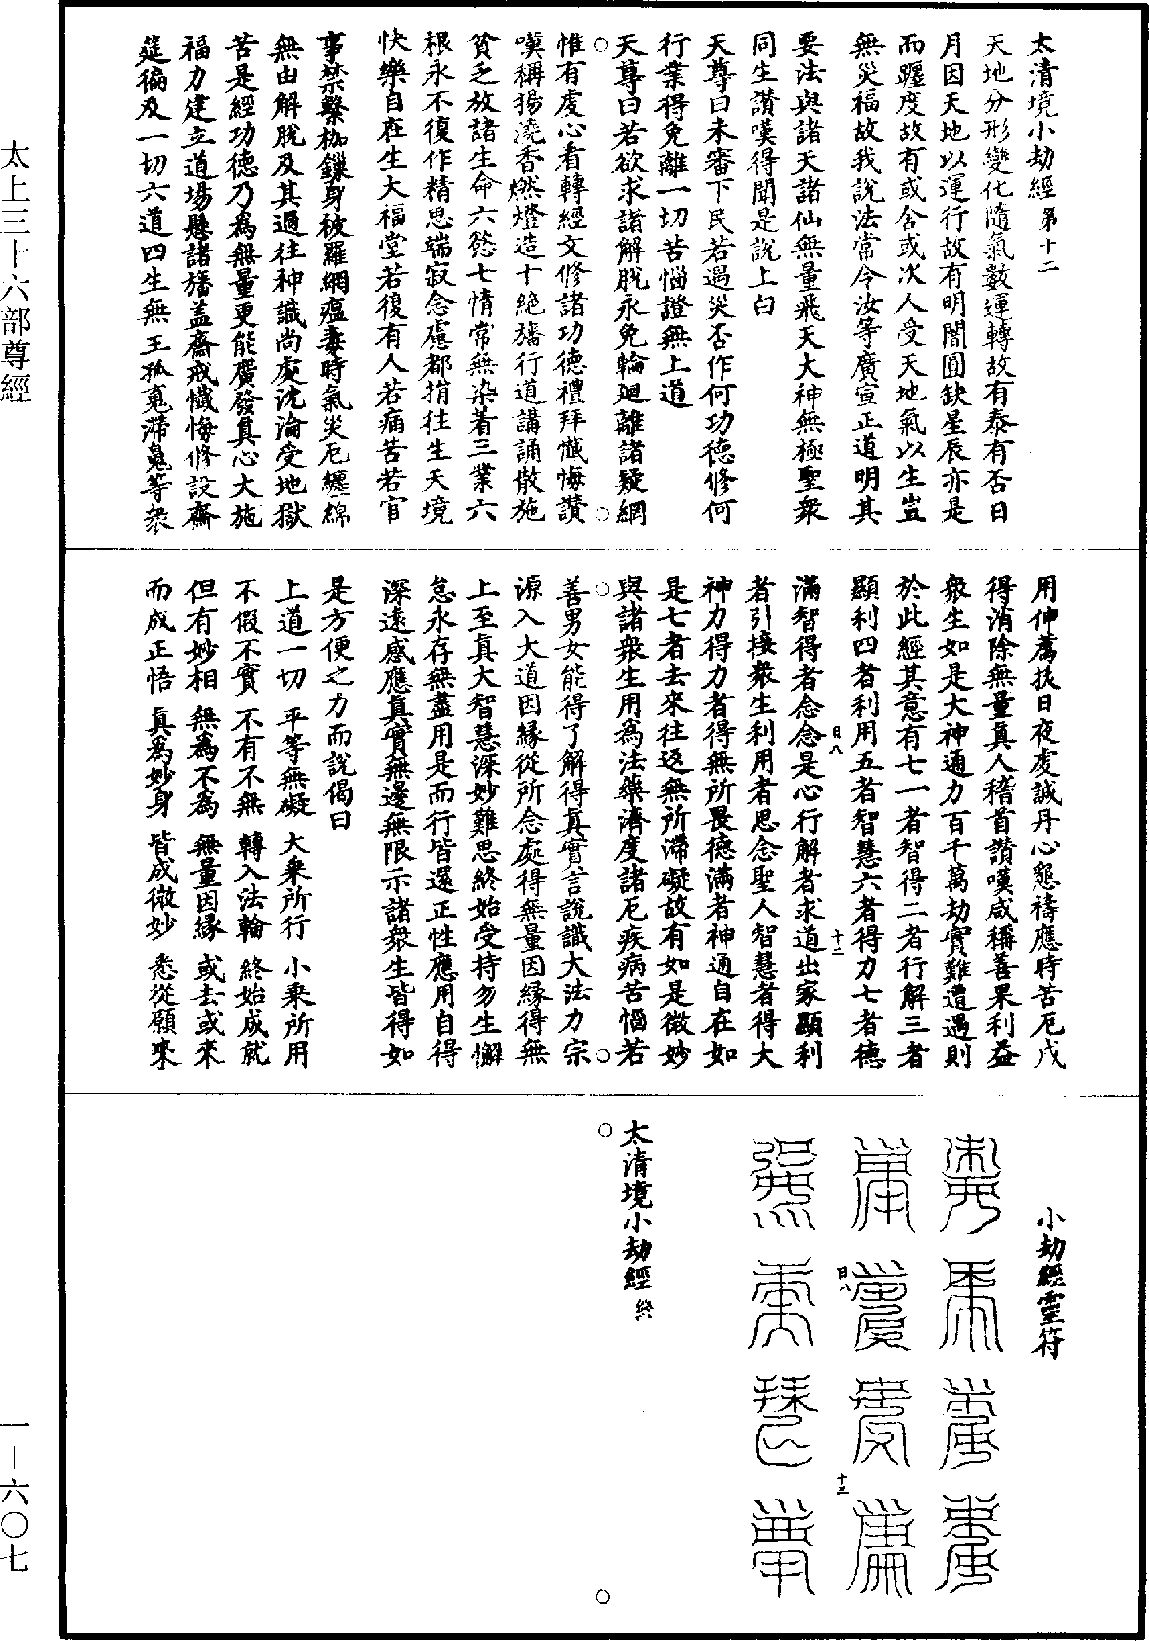 太清境小劫經第十二
天地分形變化隨氣數運轉故有泰有否日
月因天地以運行故有明闇圓缺星辰亦是
而躔度故有或舍或次人受天地氣以生豈
無災福故我說法常令汝等廣宣正道明其
要法與諸天諸仙無量飛天大神無極聖衆
同生讚嘆得聞是說上白
天尊曰未審下民若遇災否作何功德修何
行業得免離一切苦惱證無上道
天尊曰若欲求諸解脫永免輪廻離諸疑網
惟有虔心看轉經文修諸功德禮拜懺悔讚
嘆稱揚澆香燃燈造十絕旛行道講誦散施
貧乏放諸生命六慾七情常無染著三業六
根永不復作精思端寂念慮都捐往生天境
快樂自在生大福堂若復有人若痛苦若官
事禁繫枷鏁身被羅網瘟毒時氣災厄纏綿
無由解脫及其過往神識尚處沈淪受地獄
苦是經功德乃為無量更能廣發真心大施
福力建立道場懸諸旛盖齋戒懺悔修設齋
筵徧及一切六道四生無主孤䰟滯䰟等衆
用伸薦扶日夜虔誠丹心懇禱應時苦厄戍
得消除無量真人稽首讚嘆咸稱善果利益
衆生如是大神通力百千萬劫實難遭遇則
於此經其意有七一者智得二者行解三者
顯利四者利用五者智慧六者得力七者德
滿智得者念念是心行解者求道出家顯利
者引接衆生利用者思念聖人智慧者得大
神力得力者得無所畏德滿者神通自在如
是七者去來往返無所滯礙故有如是微妙
與諸衆生用為法藥濟度諸厄疾病苦惱若
善男女能得了解得真實言說識大法力宗
源入大道因緣從所念處得無量因緣得無
上至真大智慧深妙難思終始受持勿生懈
怠永存無盡用是而行皆還正性應用自得
深遠感應真實無邊無限示諸衆生皆得如
是方便之力而說偈曰
上道一切 平等無礙 大乘所行 小乘所用
不假不實 不有不無 轉入法輪 終始成就
但有妙相 無為不為 無量因緣 或去或來
而成正悟 真為妙身 皆成微妙 悉從願來
小劫經靈符
太清境小劫經終
日八
十二
日八
十三
太上三十六部尊經
一—六〇七